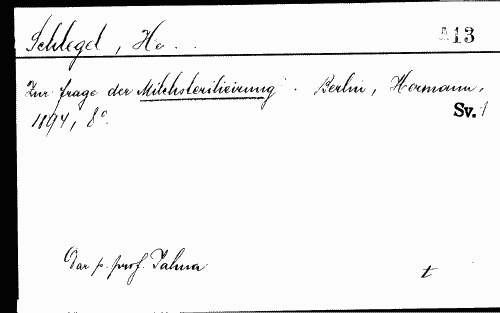 Schlegel, He . . A13
Zur frage der Milchsterilieirung. Berlin, Hermann,
1894, 8° Sv. 1
Dar p. prof. Palma
t